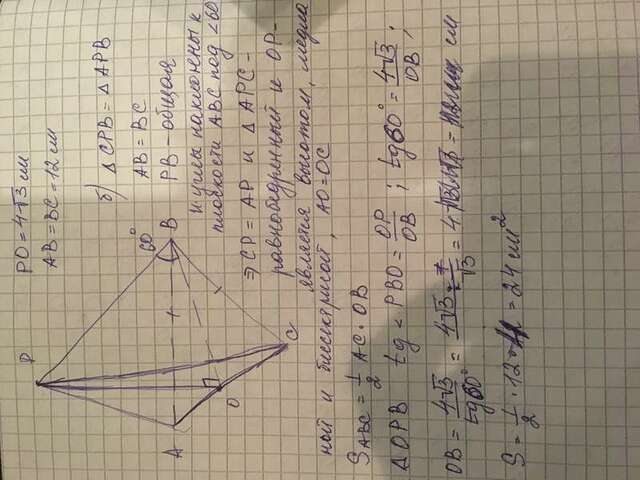 P
PO = 4√3 см
AB = BC = 12 см
60°
A
B
O
C
б) △CPB = △APB
AB = BC
PB - общая
и углы наклонны к
плоскости ABC под ∠60
⇒ CP = AP и △APC -
равнобедренный и OP-
является высотом, медиа
ной и биссектрисой, AO = OC
S ABC = 1/2 AC · OB
△OPB tg ∠PBO = OP/OB ; tg60° = 4√3/OB ;
OB = 4√3/tg60° = 4√3/√3 = 4 см
S = 1/2 · 12 · 4 = 24 см²